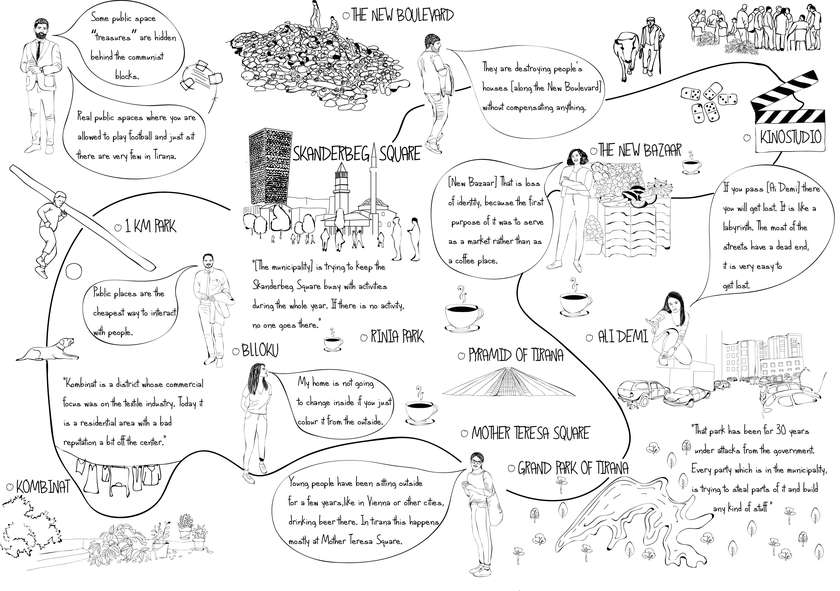 Some public space
"treasures" are hidden
behind the communist
blocks.
Real public spaces where you are
allowed to play football and just sit
there are very few in Tirana.
THE NEW BOULEVARD
They are destroying people's
houses [along the New Boulevard]
without compensating anything.
KINOSTUDIO
SKANDERBEG SQUARE
THE NEW BAZAAR
[New Bazaar] That is loss
of identity, because the first
purpose of it was to serve
as a market rather than as
a coffee place.
If you pass [Ali Demi] there
you will get lost. It is like a
labyrinth. The most of the
streets have a dead end,
it is very easy to
get lost.
1 KM PARK
Public places are the
cheapest way to interact
with people.
"[The municipality] is trying to keep the
Skanderbeg Square busy with activities
during the whole year. If there is no activity,
no one goes there."
RINIA PARK
ALI DEMI
BLLOKU
PYRAMID OF TIRANA
"Kombinat is a district whose commercial
focus was on the textile industry. Today it
is a residential area with a bad
reputation a bit off the center."
My home is not going
to change inside if you just
colour it from the outside.
MOTHER TERESA SQUARE
GRAND PARK OF TIRANA
"That park has been for 30 years
under attacks from the government.
Every party which is in the municipality,
is trying to steal parts of it and build
any kind of stuff"
KOMBINAT
Young people have been sitting outside
for a few years,like in Vienna or other cities,
drinking beer there. In tirana this happens
mostly at Mother Teresa Square.